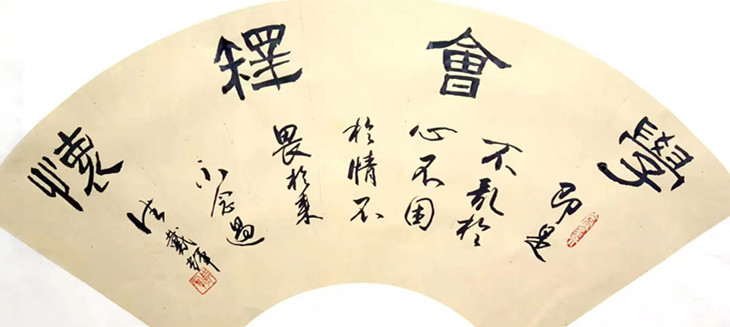 學會釋懷
即是
不亂於
心不困
於情不
畏將来
不念過
往 戴輝